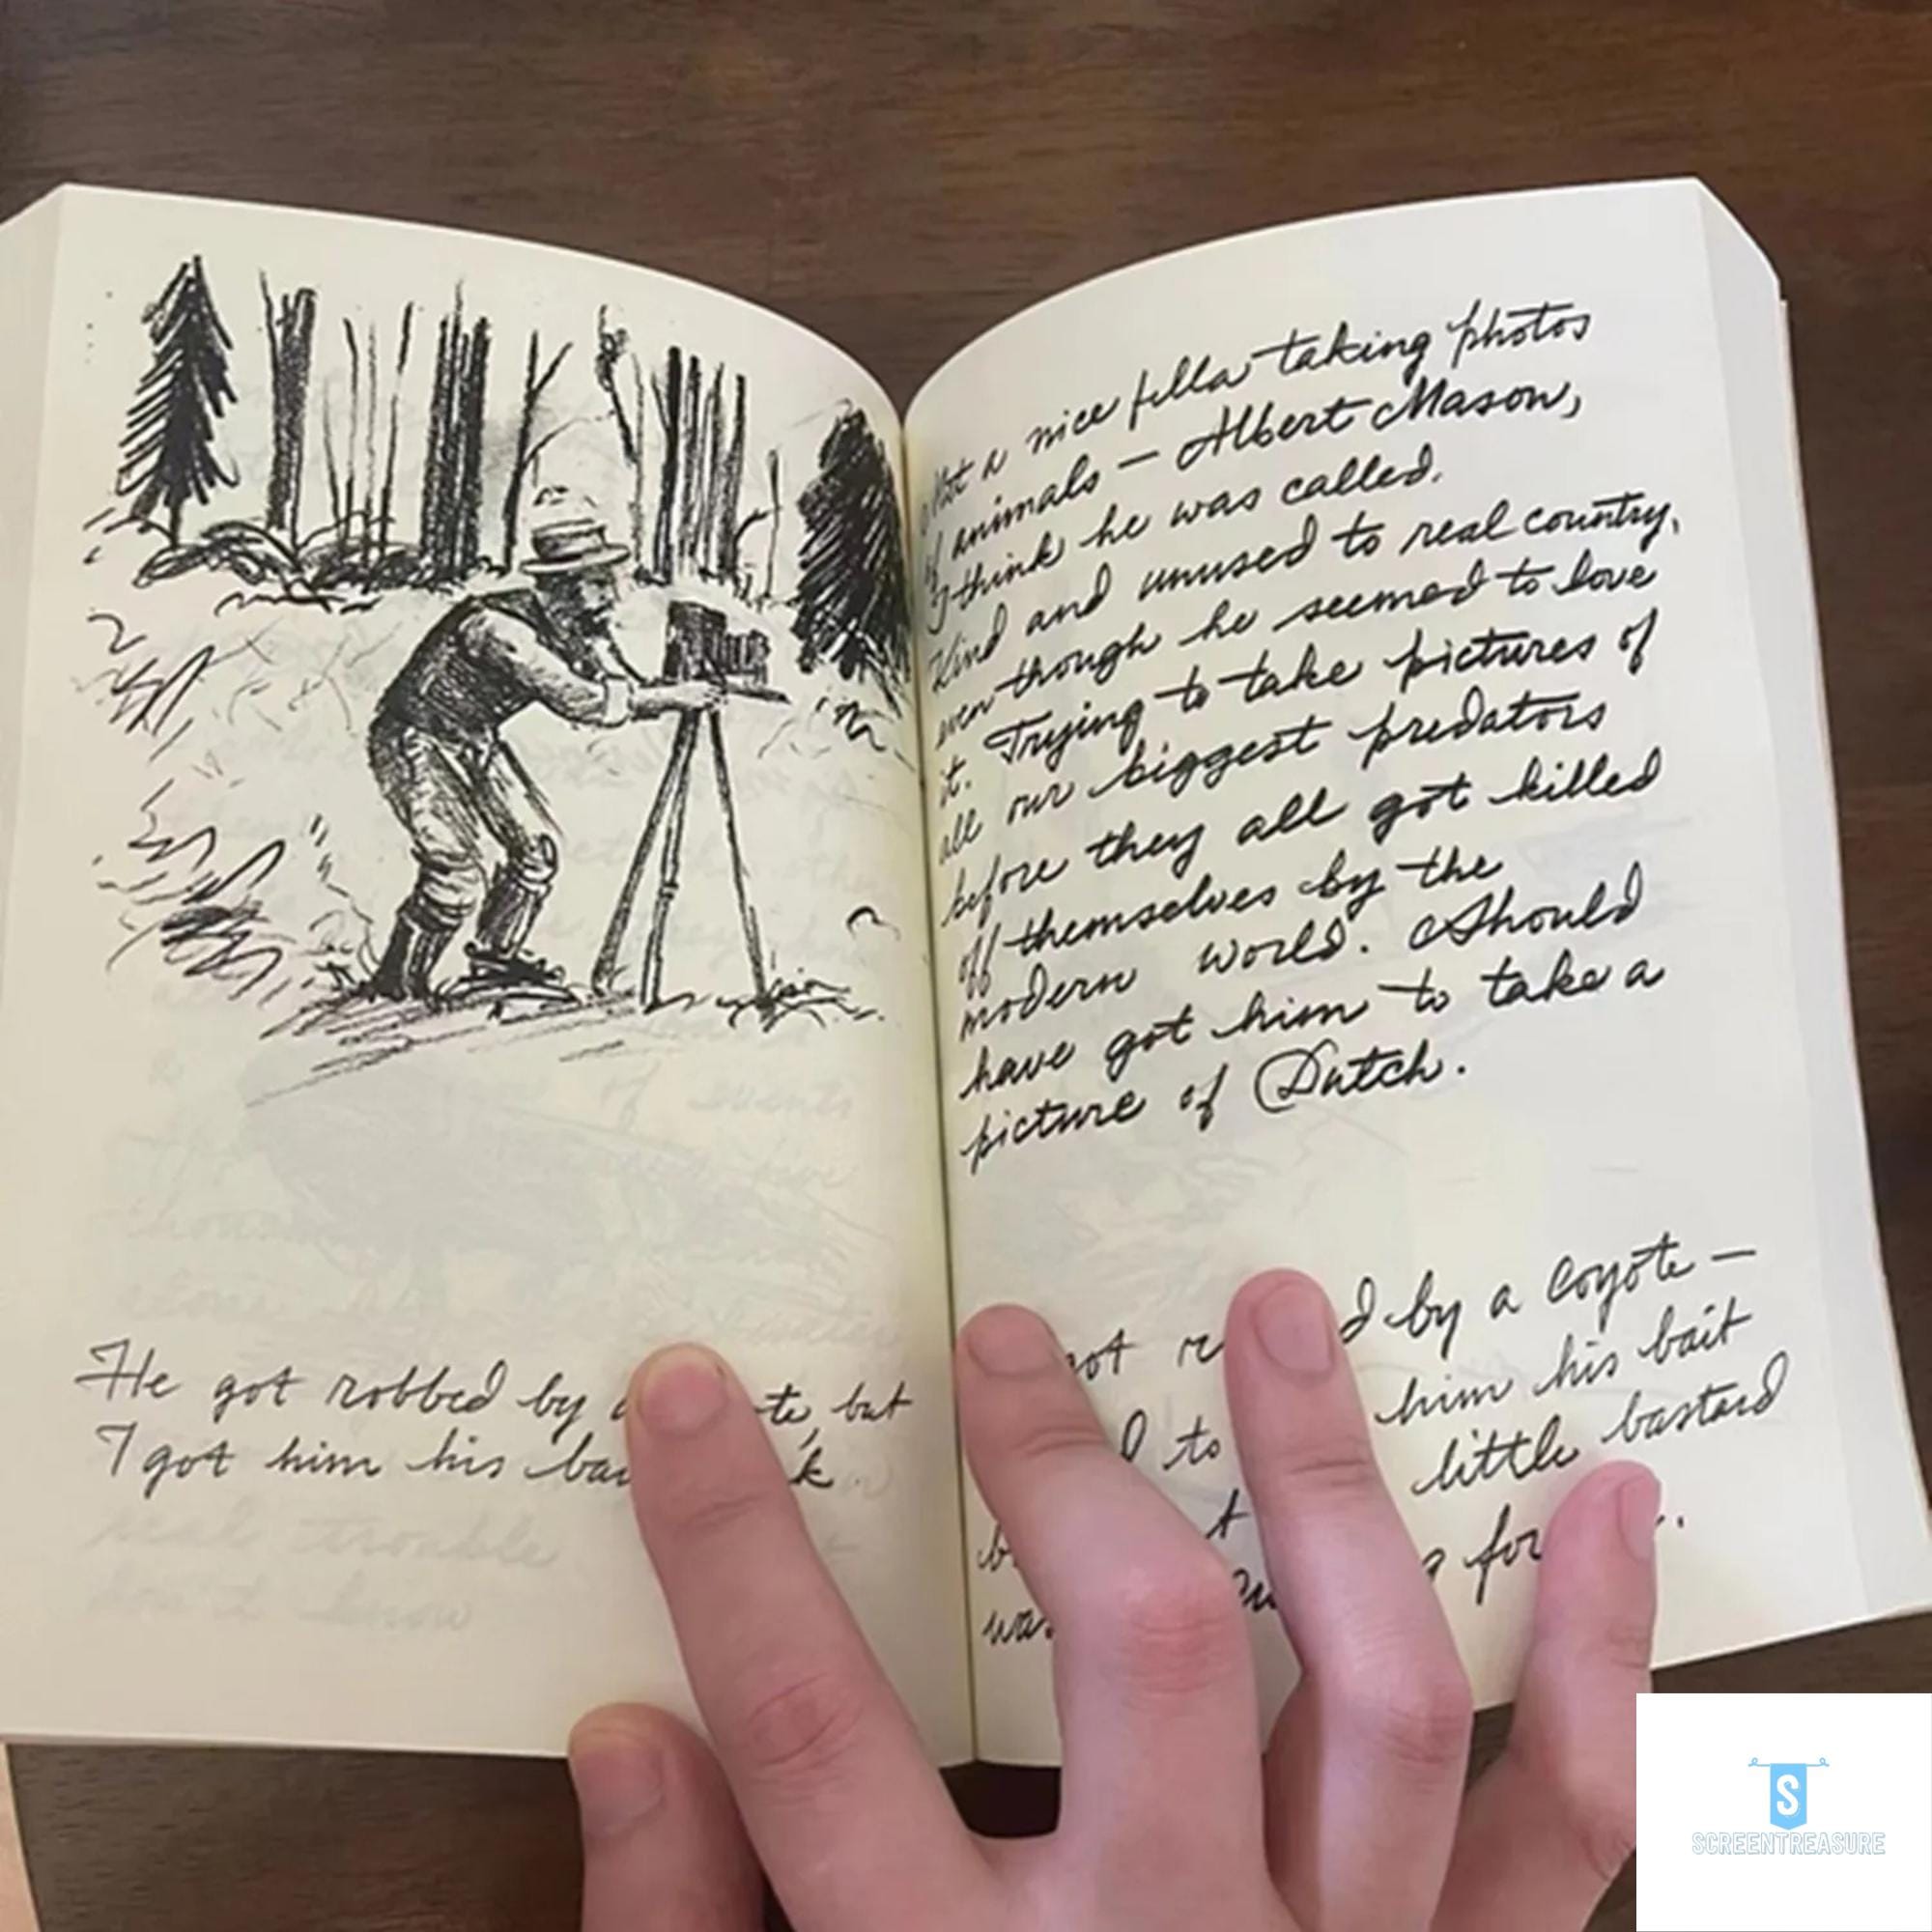 He got robbed by a te, but
I got him his ba k.
Met a nice fella taking photos
of animals — Albert Mason,
I think he was called.
Kind and unused to real country,
even though he seemed to love
it. Trying to take pictures of
all our biggest predators
before they all got killed
off themselves by the
modern world. Should
have got him to take a
picture of Dutch.
by a coyote —
to him his bait
little bastard
for
S
SCREENTREASURE